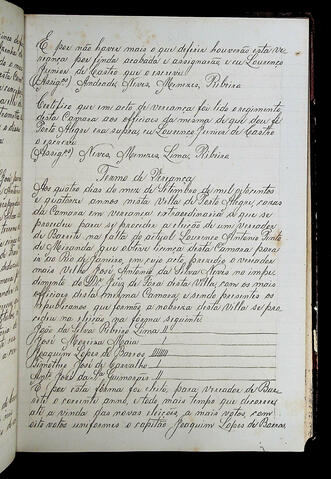 E por não haver mais o que deferir houverão esta ve
reança por finda acabada e assignarão e eu Lourenço
Junior de Castro que o escrevi
(Assig.os) Andrade, Neves, Menezes, Ribeiro
Certifico que em acto de vereança foi lido o regimento
desta Camara aos officiaes da mesma de que dou fé
Porto Alegre era supra eu Lourenço Junior de Castro
o escrevi
(Assig.os) Neves, Menezes, Lima, Ribeiro
Termo de Vereança
Aos quatro dias do mez de Setembro de mil oitocentos
e quatorze annos nesta Villa de Porto Alegre, casas
da Camara em vereança extraordinaria a que se
procedeu para se proceder a eleição de um vereador
de Barrete na falta do actual Lourenço Antonio Pinto
de Miranda que obteve licença desta Camara para
ir ao Rio de Janeiro, em cujo acto presidio o vereador
mais velho José Antonio da Silva Neves no impe
dimento do Dr. Juiz de Fora desta Villa, com os mais
officiaes desta mesma Camara, e sendo presentes os
republicanos que formão a nobreza desta Villa se pro
cedeu na eleição, na forma seguinte
João da Silva Ribeiro Lima II
José Moreira Maia I
Joaquim Lopes de Barros IIIIIIII
Timotheo José de Carvalho I
Ant.o José da S.a Guimarães II
E por esta forma foi feito, para vereador de Bar
rete o corrente anno, e todo mais tempo que decorrer
até a vinda das novas eleições, a mais votos, com
oito votos uniformes o capitão Joaquim Lopes de Barros,